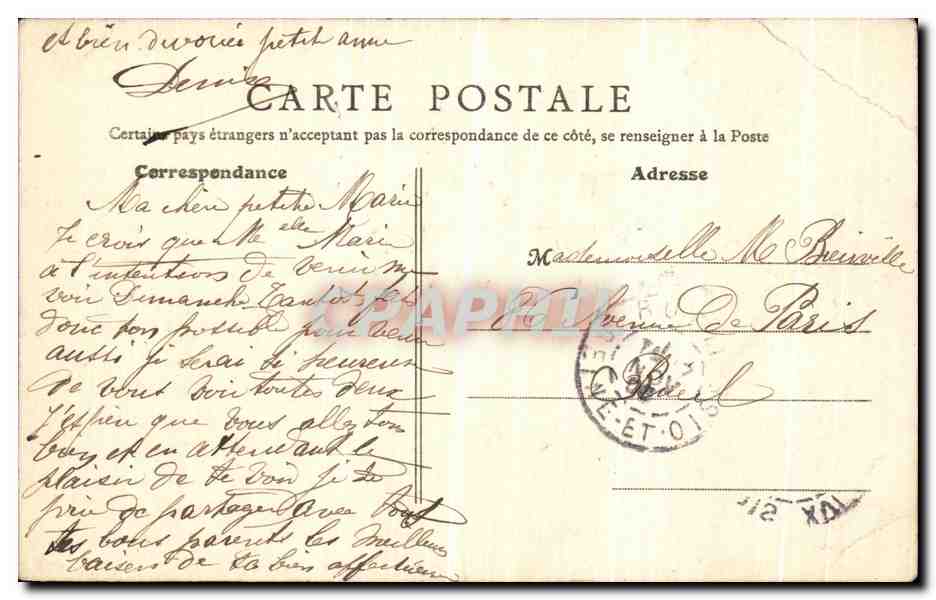 et bien dévouée petite amie
Denise
CARTE POSTALE
Certains pays étrangers n'acceptent pas la correspondance de ce côté, se renseigner à la Poste
Correspondance
Adresse
Ma chère petite Marie
Je crois que Melle Marie
à l'intention de venir me
voir Dimanche Tantôt fais
donc ton possible pour venir
aussi je serai si heureuse
de vous voir toutes deux
J'espère que vous allez tous
bien et en attendant le
plaisir de te voir je te
prie de partager avec tout
tes bons parents les meilleurs
baisers de ta bien affectueuse
Mademoiselle M Bienville
Avenue de Paris
Rueil
CPAPHIL
SEINE-ET-OISE
NOV